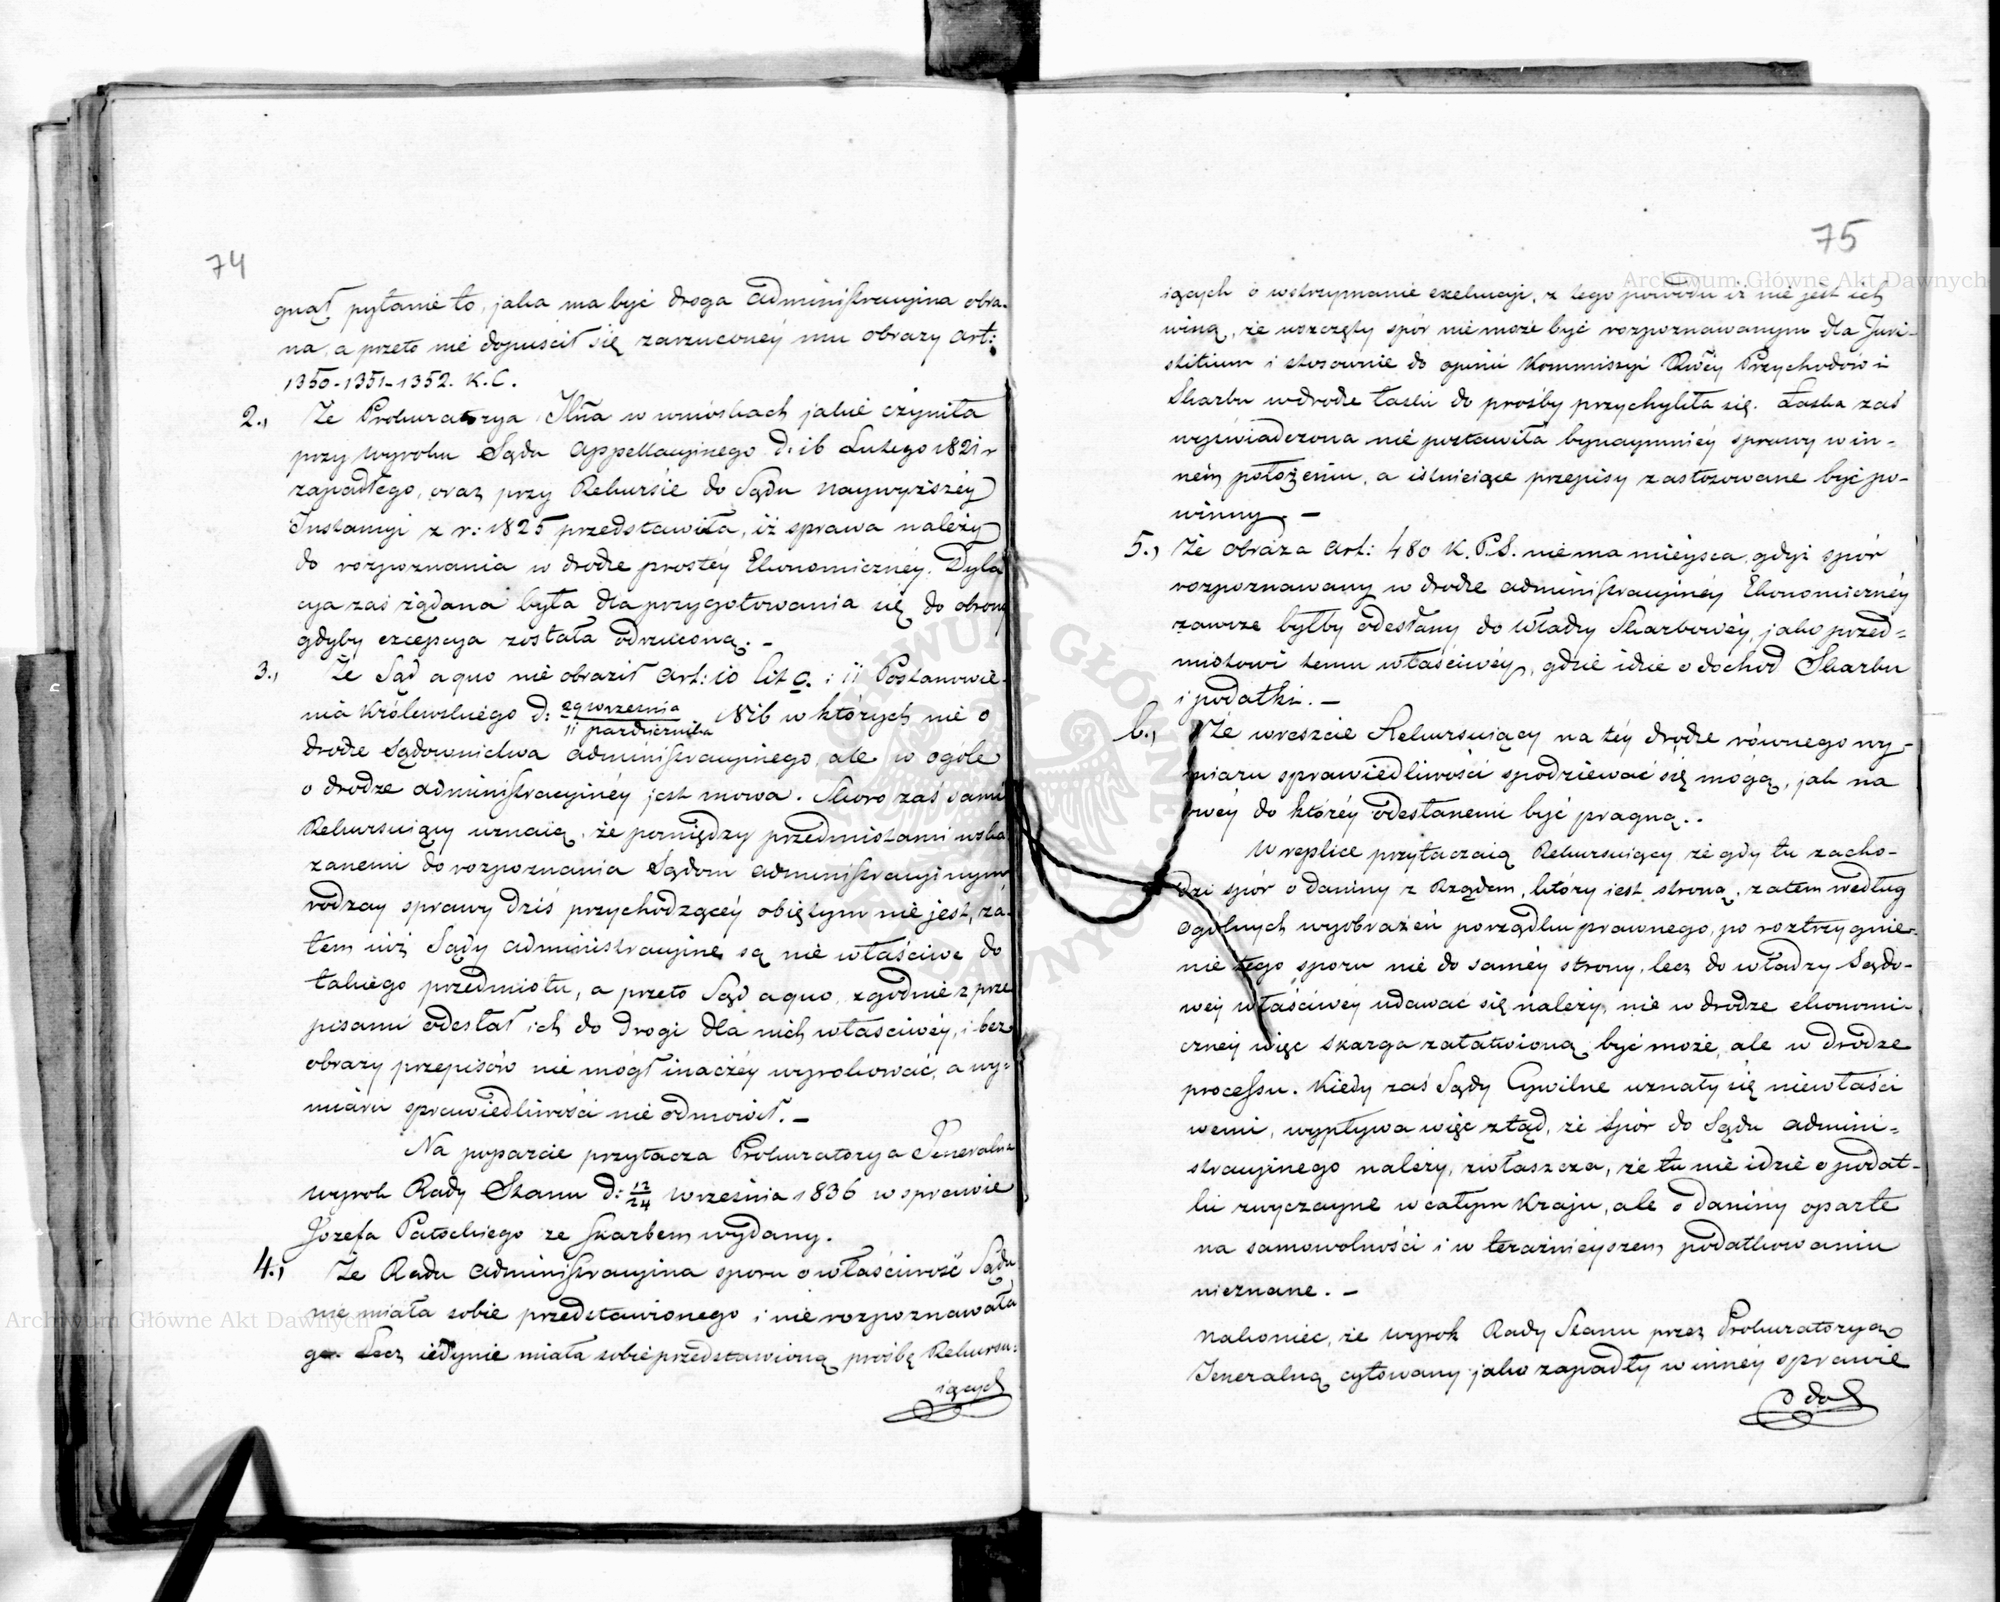 74
gnął pytanie to, jaka ma być droga administracyina obra-
na, a przeto nie dopuścił się zarzuconéy mu obrazy art:
1350-1351-1352. K.C.
2., Że Prokuratorya Jlna w wnioskach jakie czyniła
przy wyroku Sądu Appellacyinego d: 16 Lutego 1821 r
zapadłego, oraz przy Rekursie do Sądu Naywyższéy
Instancyi z r: 1825 przedstawiła, iż sprawa należy
do rozpoznania w drodze prostéy Ekonomicznéy. Dyla
cya zaś żądana była dla przygotowania się do obrony
gdyby excepcya została odrzuconą. -
3., Że Sąd a quo nie obraził art: 10 lit c. i 11 Postanowie-
nia Królewskiego d: 29 września / 11 października 1816 w których nie o
drodze Sądownictwa administracyinego, ale w ogóle
o drodze administracyinéy jest mowa. Skoro zaś sami
Rekursuiący uznaią, że pomiędzy przedmiotami wska
zanemi do rozpoznania Sądom administracyinym
rodzay sprawy dziś przychodzącéy obiętym nie jest, za-
tem iuż Sądy administracyine są nie właściwe do
takiego przedmiotu, a przeto Sąd a quo zgodnie z prze
pisami odesłał ich do drogi dla nich właściwéy, i bez
obrazy przepisów nie mógł inaczéy wyrokować, a wy-
miaru sprawiedliwości nie odmówił. -
Na poparcie przytacza Prokuratorya Jeneralna
wyrok Rady Stanu d: 12/24 Września 1836 w sprawie
Józefa Patockiego ze Skarbem wydany.
4., Że Rada Administracyina sporu o właściwość Sądu
nie miała sobie przedstawionego i nie rozpoznawała
go. Lecz iedynie miała sobie przedstawioną prośbę Rekursu-
iących
75
iących o wstrzymanie exekucyi, z tego powodu iż nie jest ich
winą, że wszczęty spór nie może być rozpoznawanym dla Juri-
stitium i stosownie do opinii Kommissyi Rzdéy Przychodów i
Skarbu w drodze łaski do prośby przychyliła się. Łaska zaś
wyświadczona nie postawiła bynaymniéy sprawy w in-
nem położeniu, a istnieiące przepisy zastosowane być po-
winny. -
5., Że obraza art: 480 K.P.S. nie ma mieysca, gdyż spór
rozpoznawany w drodze administracyinéy Ekonomicznéy
zawsze byłby odesłany do Władzy Skarbowéy, jako przed-
miotowi temu właściwéy, gdzie idzie o dochód Skarbu
i podatki. -
6., Że wreszcie Rekursuiący na téy drodze równego wy-
miaru sprawiedliwości spodziewać się mogą, jak na
owéy do któréy odesłanemi być pragną..
W replice przytaczaią Rekursuiący, że gdy tu zacho-
dzi spór o daniny z Rządem, który iest stroną, zatem według
ogólnych wyobrażeń porządku prawnego, po roztrzygnie-
nie tego sporu nie do saméy strony, lecz do władzy Sądo-
wéy właściwéy udawać się należy, nie w drodze ekonomi-
cznéy więc skarga załatwioną być może, ale w drodze
processu. Kiedy zaś Sądy Cywilne uznały się niewłaści
wemi, wypływa więc ztąd, że spór do Sądu admini-
stracyinego należy, zwłaszcza, że tu nie idzie o podat-
ki zwyczayne w całym Kraju, ale o daniny oparte
na samowolności i w teraźnieyszem podatkowaniu
nieznane. -
Nakoniec, że wyrok Rady Stanu przez Prokuratoryą
Jeneralną cytowany jako zapadły w innéy sprawie
Archiwum Główne Akt Dawnych
Archiwum Główne Akt Dawnych